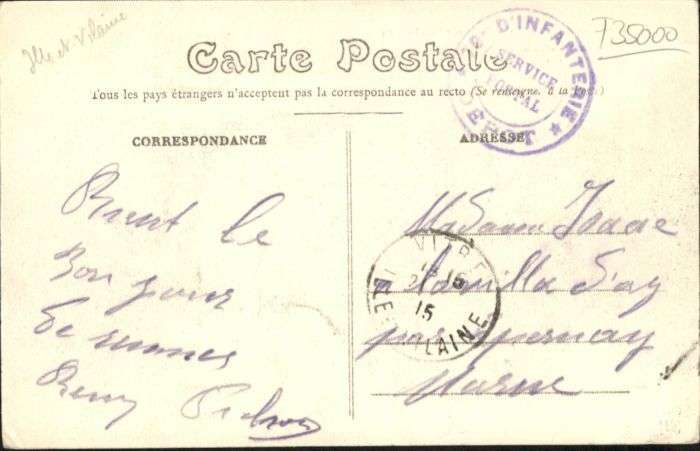 Ille et Vilaine
735000
Carte Postale
D'INFANTERIE
SERVICE
POSTAL
Tous les pays étrangers n'acceptent pas la correspondance au recto (Se renseigner à la Poste)
CORRESPONDANCE
ADRESSE
le
Bon jour
de rennes
Remy
Madame Isaac
d'ay
par epernay
Marne
VITRE
15
15
ILLE VILAINE